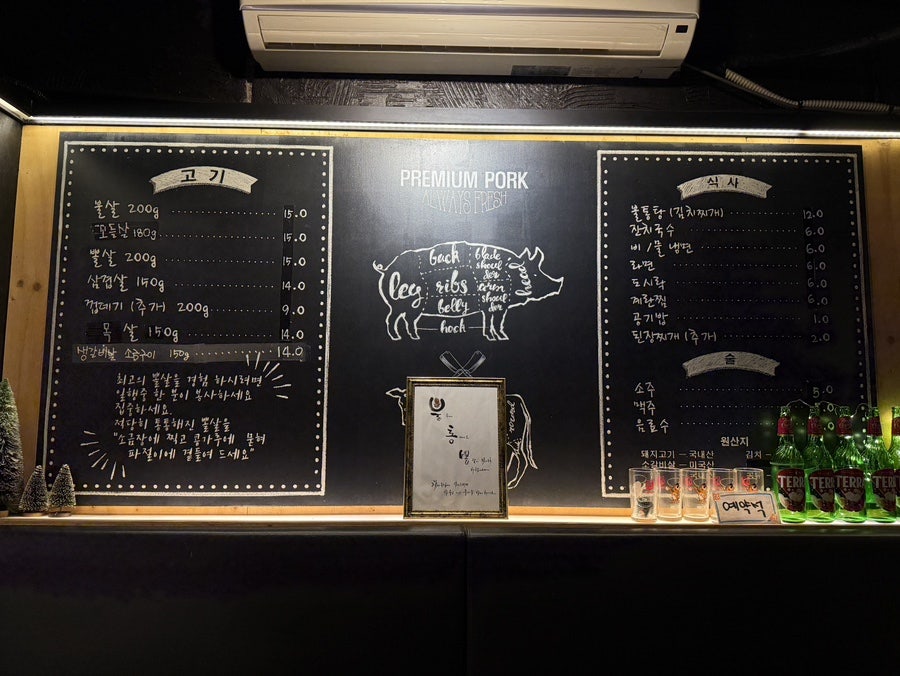 고기
불살 200g 15.0
모듬살 180g 15.0
뽈살 200g 15.0
삼겹살 150g 14.0
껍데기 (추가) 200g 9.0
목살 150g 14.0
생갈비살 소금구이 150g 14.0
최고의 뽈살을 경험 하시려면
일행중 한 분이 봉사하세요
집중하세요.
적당히 통통해진 뽈살을
"소금장에 찍고 콩가루에 묻혀
파절이에 곁들여 드세요"
PREMIUM PORK
ALWAYS FRESH
back
blade shoulder
head
leg
ribs
arm shoulder
belly
hock
불
통
식사
불통탕 (김치찌개) 12.0
잔치국수 6.0
비/물 냉면 6.0
라면 6.0
도시락 6.0
계란찜 6.0
공기밥 1.0
된장찌개 (추가) 2.0
술
소주 5.0
맥주
음료수
원산지
돼지고기 - 국내산 김치 -
소갈비살 - 미국산
예약석
TERRA
TERRA
TERRA